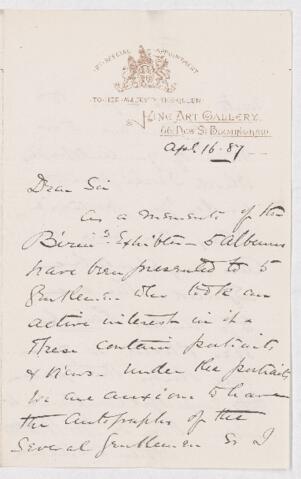 BY SPECIAL APPOINTMENT
TO HER MAJESTY THE QUEEN
FINE ART GALLERY
66 NEW ST BIRMINGHAM
Apl 16. 87
Dear Sir
As a memento of the
Exhibition 5 Albums
have been presented to 5
Gentlemen who took an
active interest in it.
These contain portraits
& views. Under the portraits
we are anxious to have
the Autographs of the
several gentlemen & I